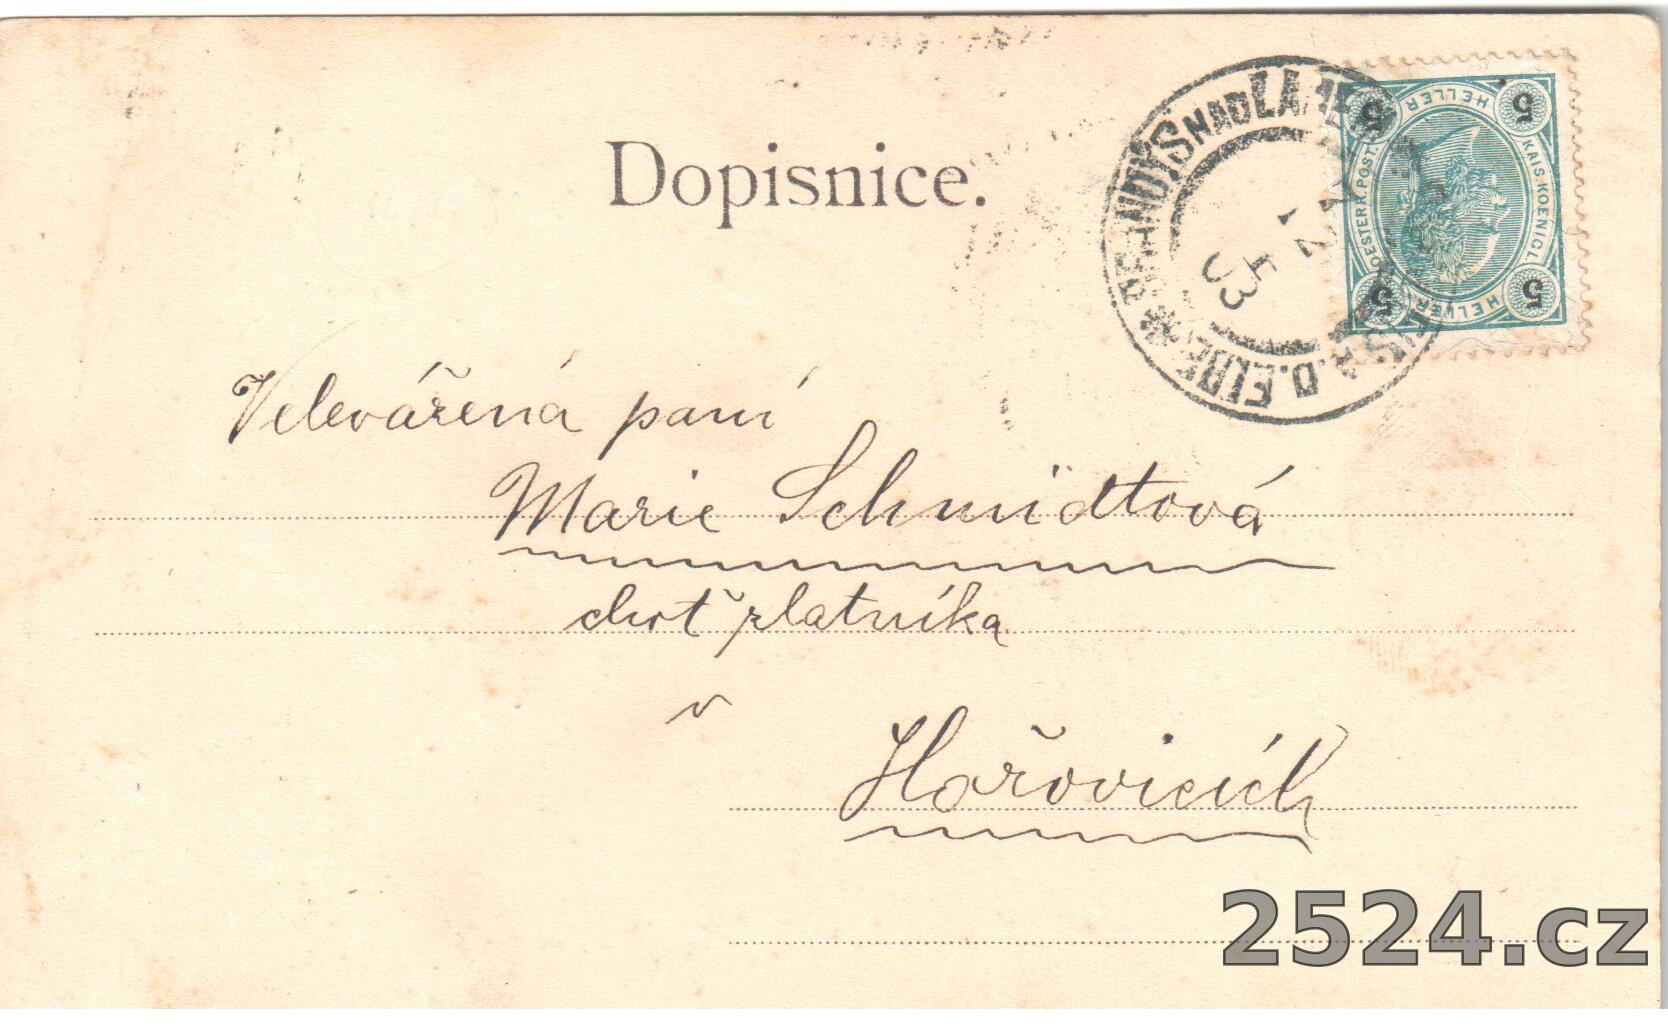 Dopisnice.
BRANDÝS NAD LABEM
D. ELBE
12 5 03
5 HELLER 5
KAIS. KOENIGL. OESTERR. POST.
5 HELLER 5
Velevářená paní
Marie Schmidtová
choť zlatníka
v
Hořovicích
2524.cz